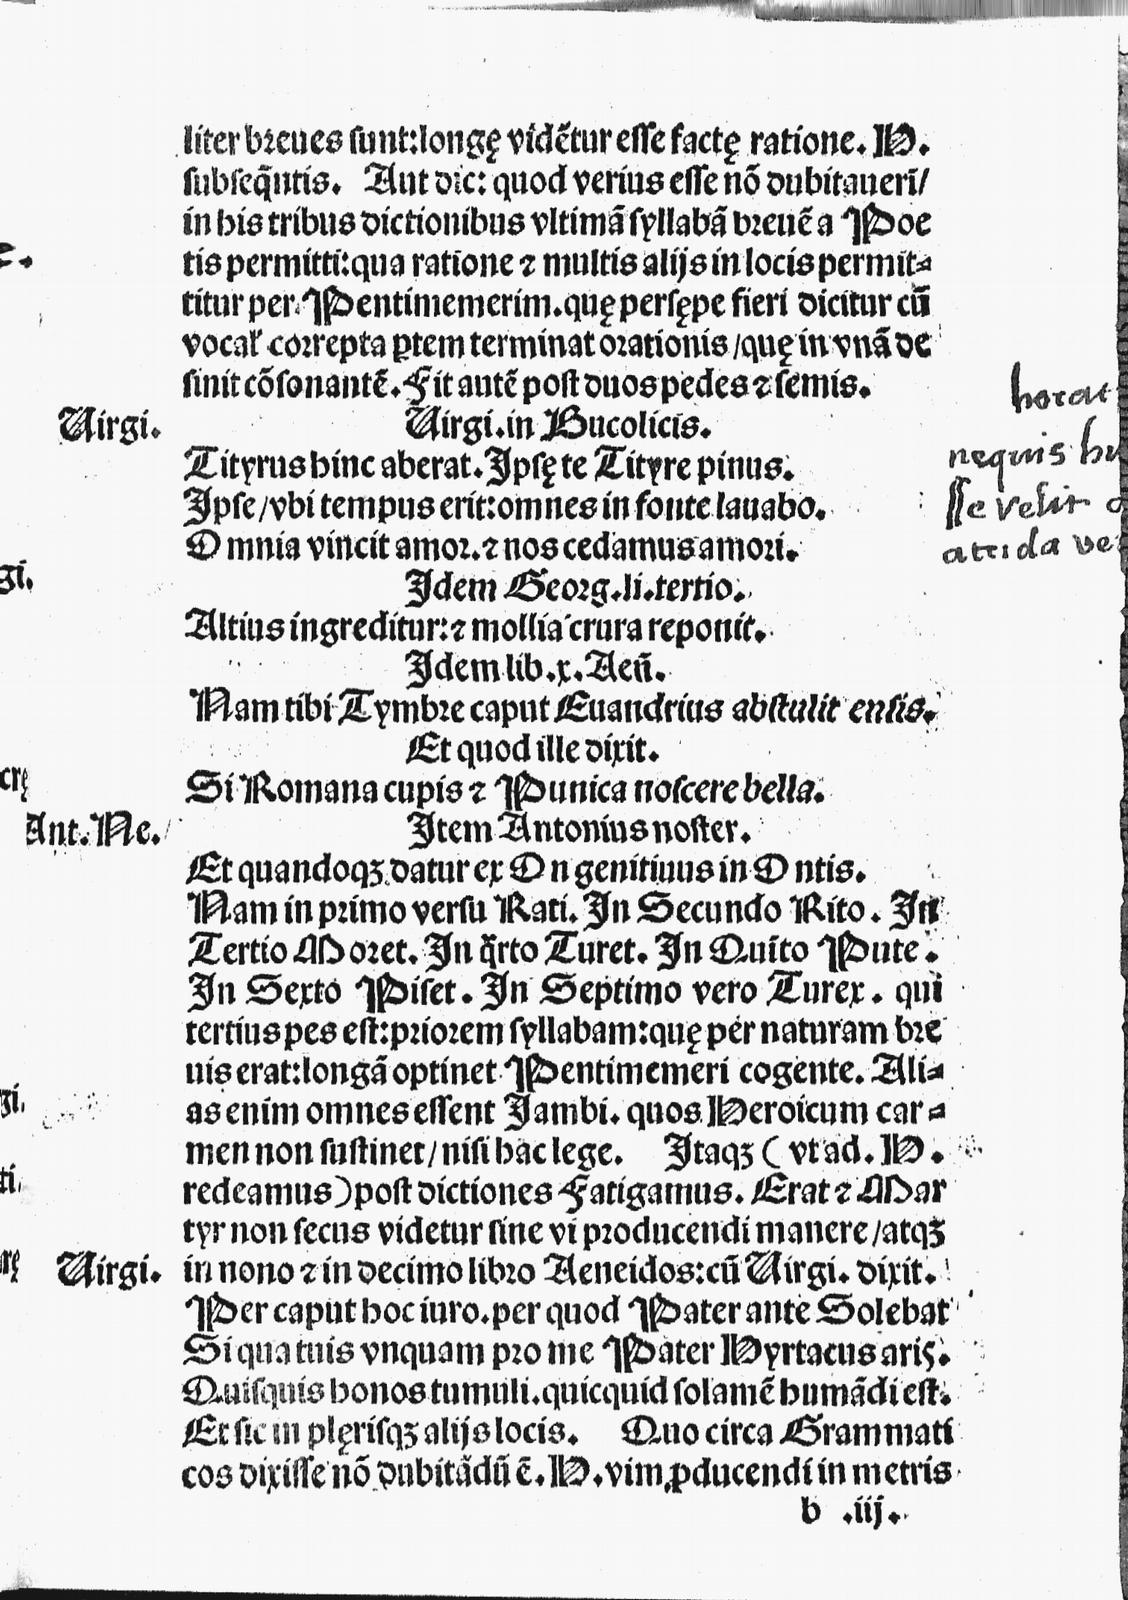 liter breues sunt:longę vidētur esse factę ratione. H.
subseq̄ntis. Aut dic: quod verius esse nō dubitauerī/
in his tribus dictionibus vltimā syllabā breuē a Poe
tis permitti:qua ratione ⁊ multis alijs in locis permit⸗
titur per Pentimemerim.quę persępe fieri dicitur cū
vocal̓ correpta ꝑtem terminat orationis/quę in vnā de
sinit cōsonantē. Fit autē post duos pedes ⁊ semis.
Virgi. Virgi.in Bucolicis.
Tityrus hinc aberat. Ipsę te Tityre pinus.
Ipse/vbi tempus erit:omnes in fonte lauabo.
Omnia vincit amor.⁊ nos cedamus amori.
horat
nequis hu
sse velit
atrida ve
gi.
Idem Georg.li.tertio.
Altius ingreditur:⁊ mollia crura reponit.
Idem lib.x.Aeñ.
Nam tibi Tymbre caput Euandrius abstulit ensis.
Et quod ille dixit.
crę
Si Romana cupis ⁊ Punica noscere bella.
Ant.Ne. Item Antonius noster.
Et quandoqꝫ datur ex On genitiuus in Ontis.
Nam in primo versu Rati. In Secundo Rito. In
Tertio Moret. In q̄rto Turet. In Quīto Pute.
In Sexto Piset. In Septimo vero Turex. qui
tertius pes est:priorem syllabam:quę per naturam bre
uis erat:longā optinet Pentimemeri cogente. Ali⸗
gi.
as enim omnes essent Jambi. quos Heroicum car⸗
men non sustinet/nisi hac lege. Itaqꝫ (vt ad. H.
ti.
redeamus)post dictiones Fatigamus. Erat ⁊ Mar
tyr non secus videtur sine vi producendi manere/atqꝫ
rę
Virgi. in nono ⁊ in decimo libro Aeneidos:cū Virgi. dixit.
Per caput hoc iuro.per quod Pater ante Solebat
Si qua tuis vnquam pro me Pater Hyrtacus aris.
Quisquis honos tumuli.quicquid solamē humādi est.
Et sic in plęrisqꝫ alijs locis. Quo circa Grammati
cos dixisse nō dubitādū ē. H.vim ꝓducendi in metris
b .iij.